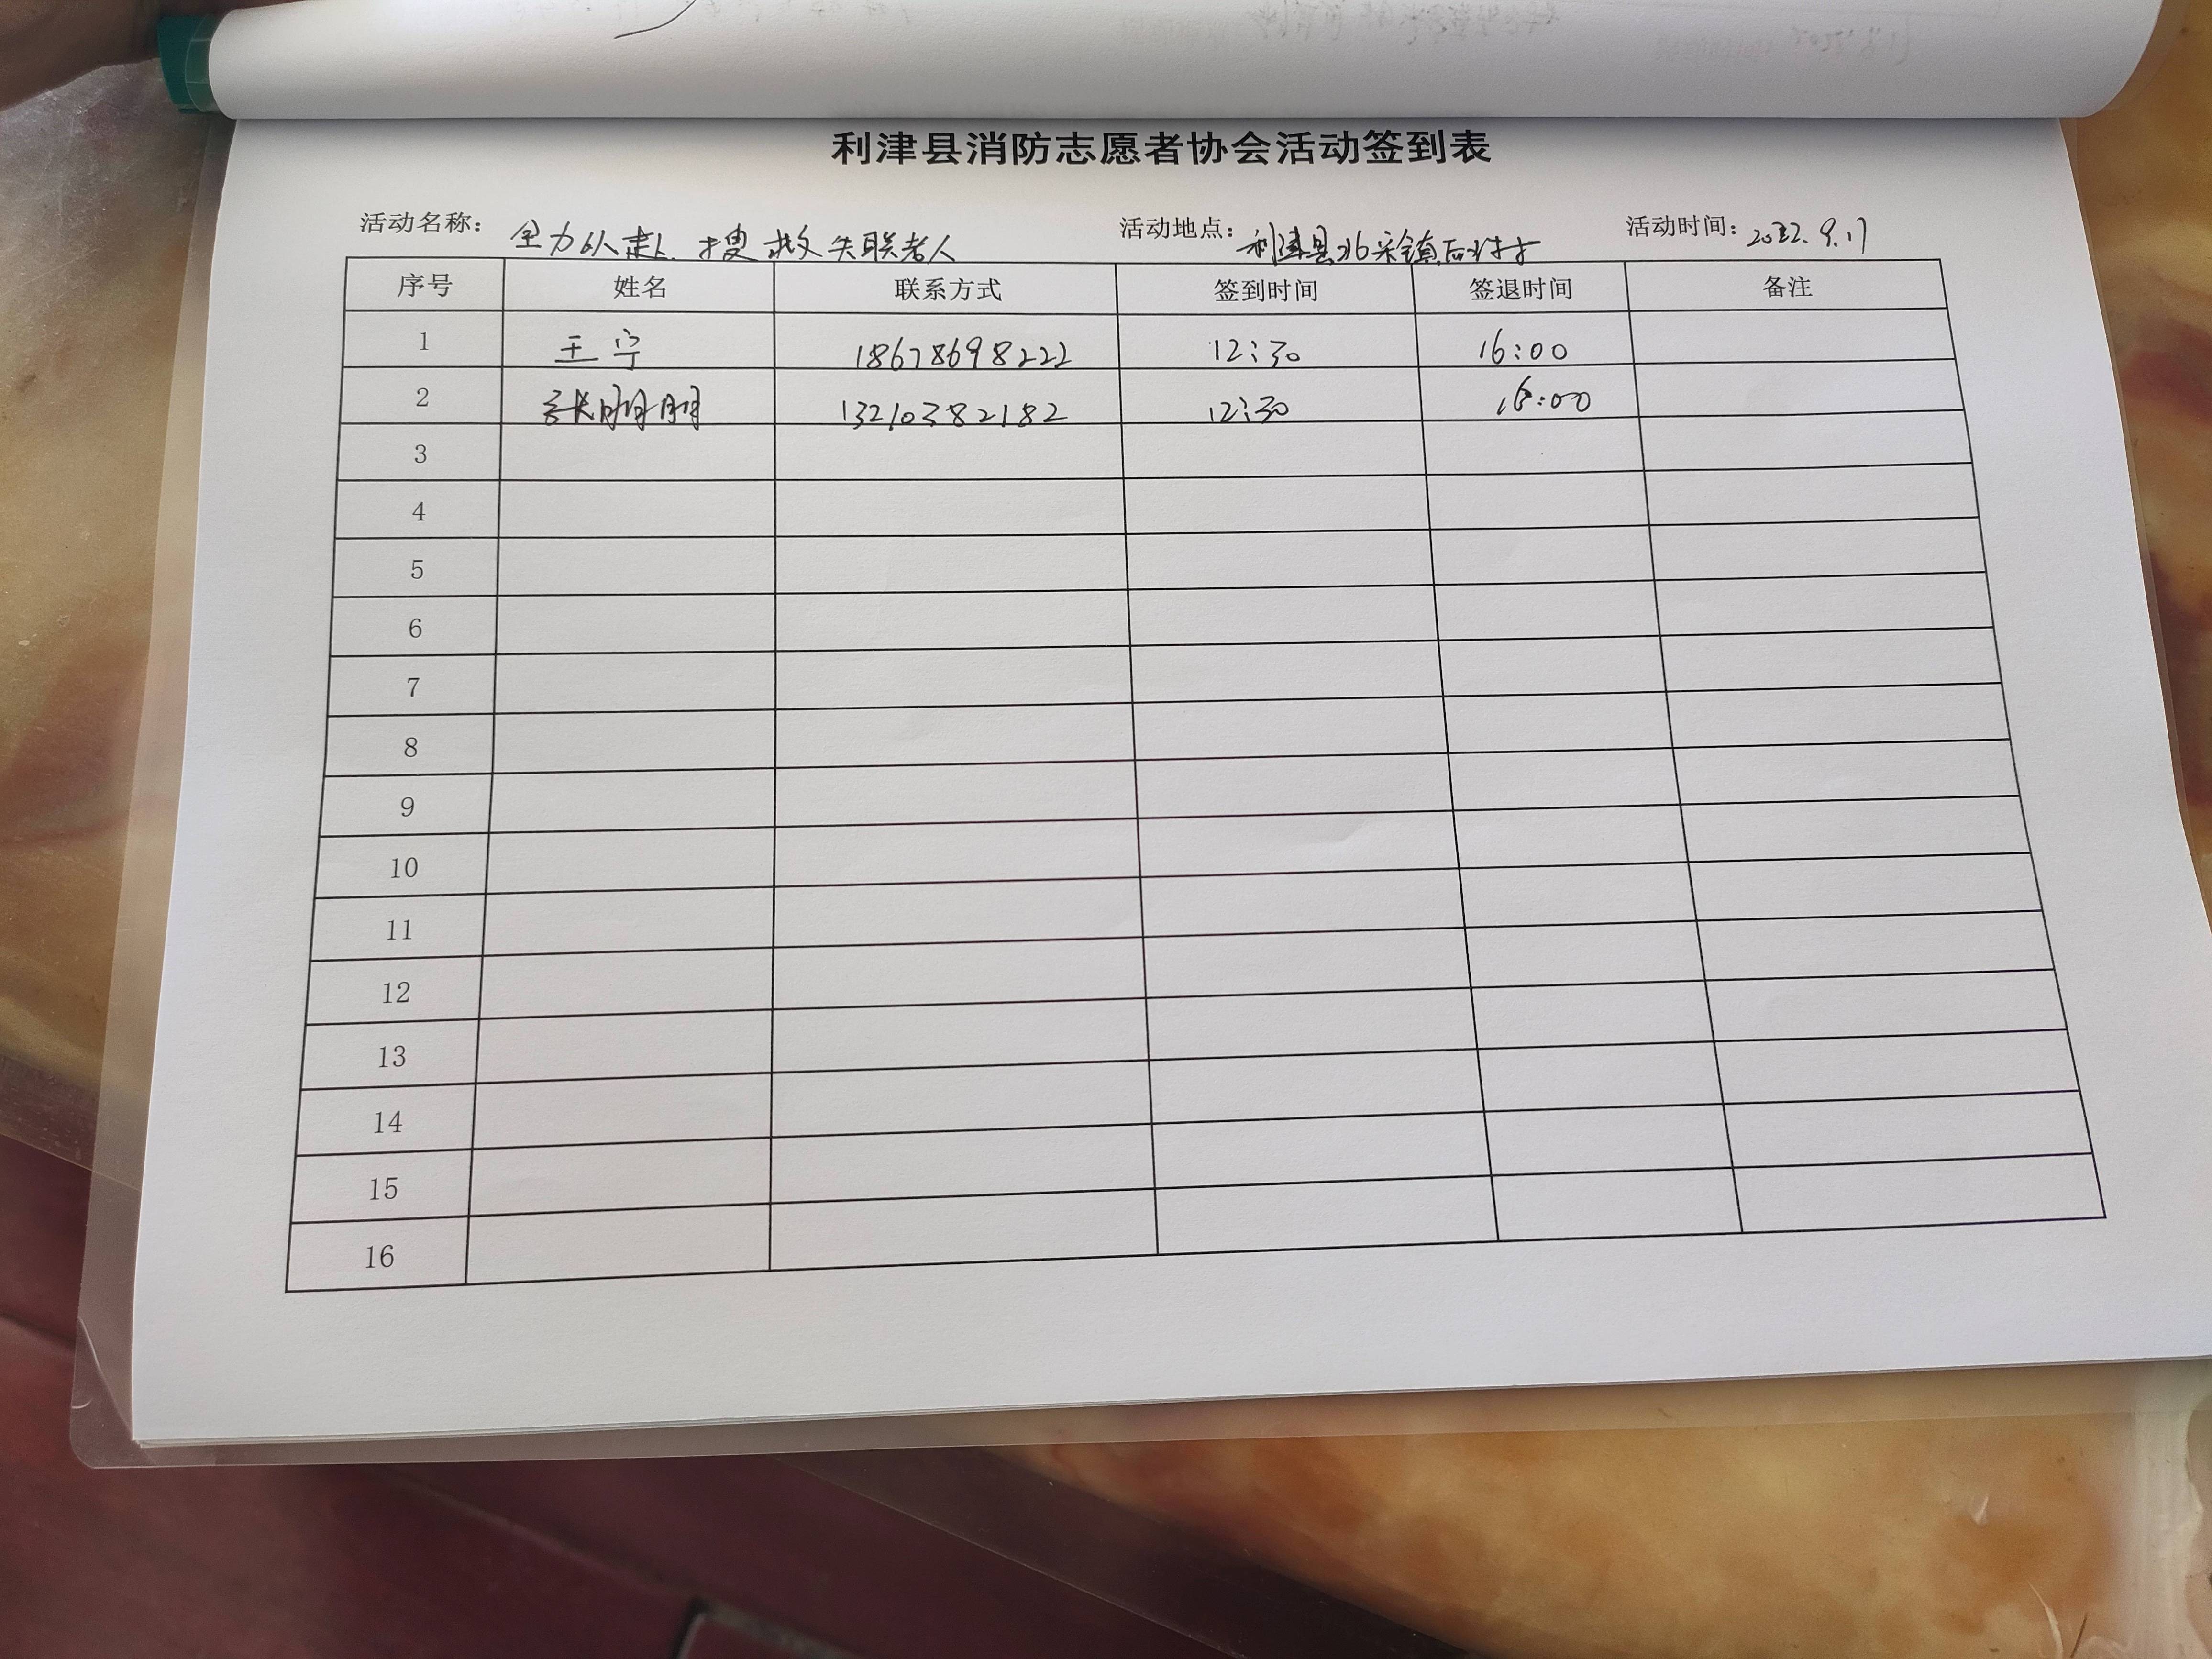 利津县消防志愿者协会活动签到表
活动名称: 全力以赴 搜救失联老人 活动地点: 利津县北宋镇后许村 活动时间: 2022.9.17
序号 姓名 联系方式 签到时间 签退时间 备注
1 王宁 18678698222 12:30 16:00
2 张明明 13210382182 12:30 16:00
3
4
5
6
7
8
9
10
11
12
13
14
15
16